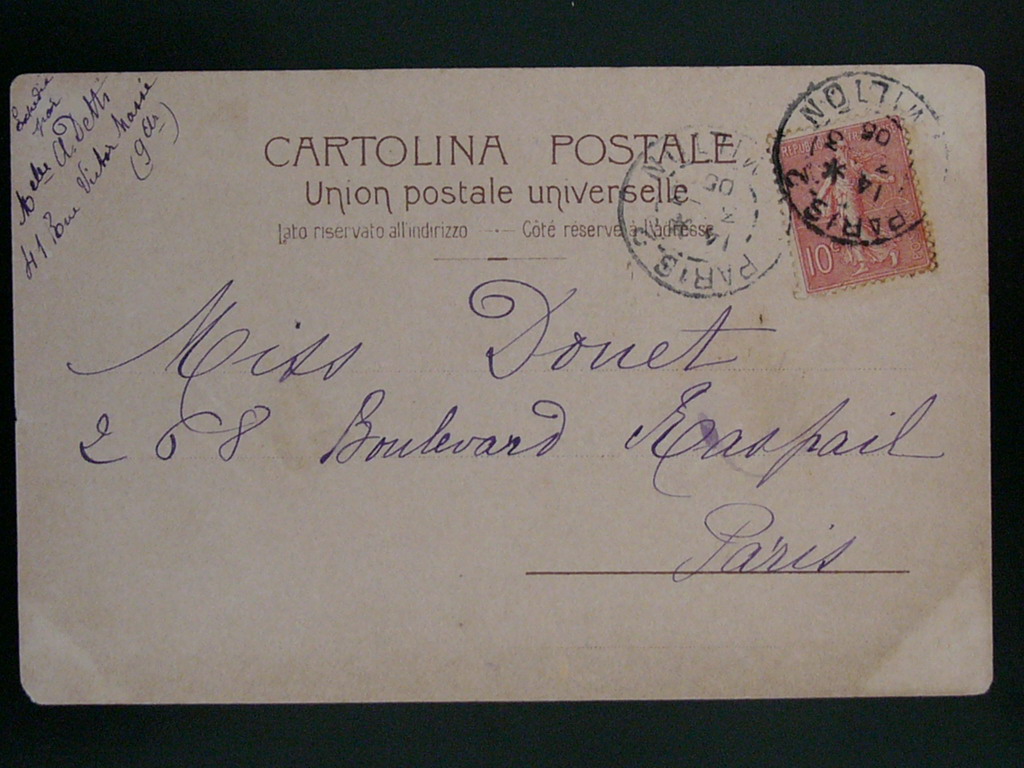 Expédié
par
Melle A. Detti
41 Rue Victor Massé
(9 Ar)
CARTOLINA POSTALE
Union postale universelle
lato riservato all'indirizzo — Côté réservé à l'adresse
PARIS 2
MILTON
14
3
06
PARIS 2
MILTON
14
3
06
10
Miss Douet
268 Boulevard Raspail
Paris